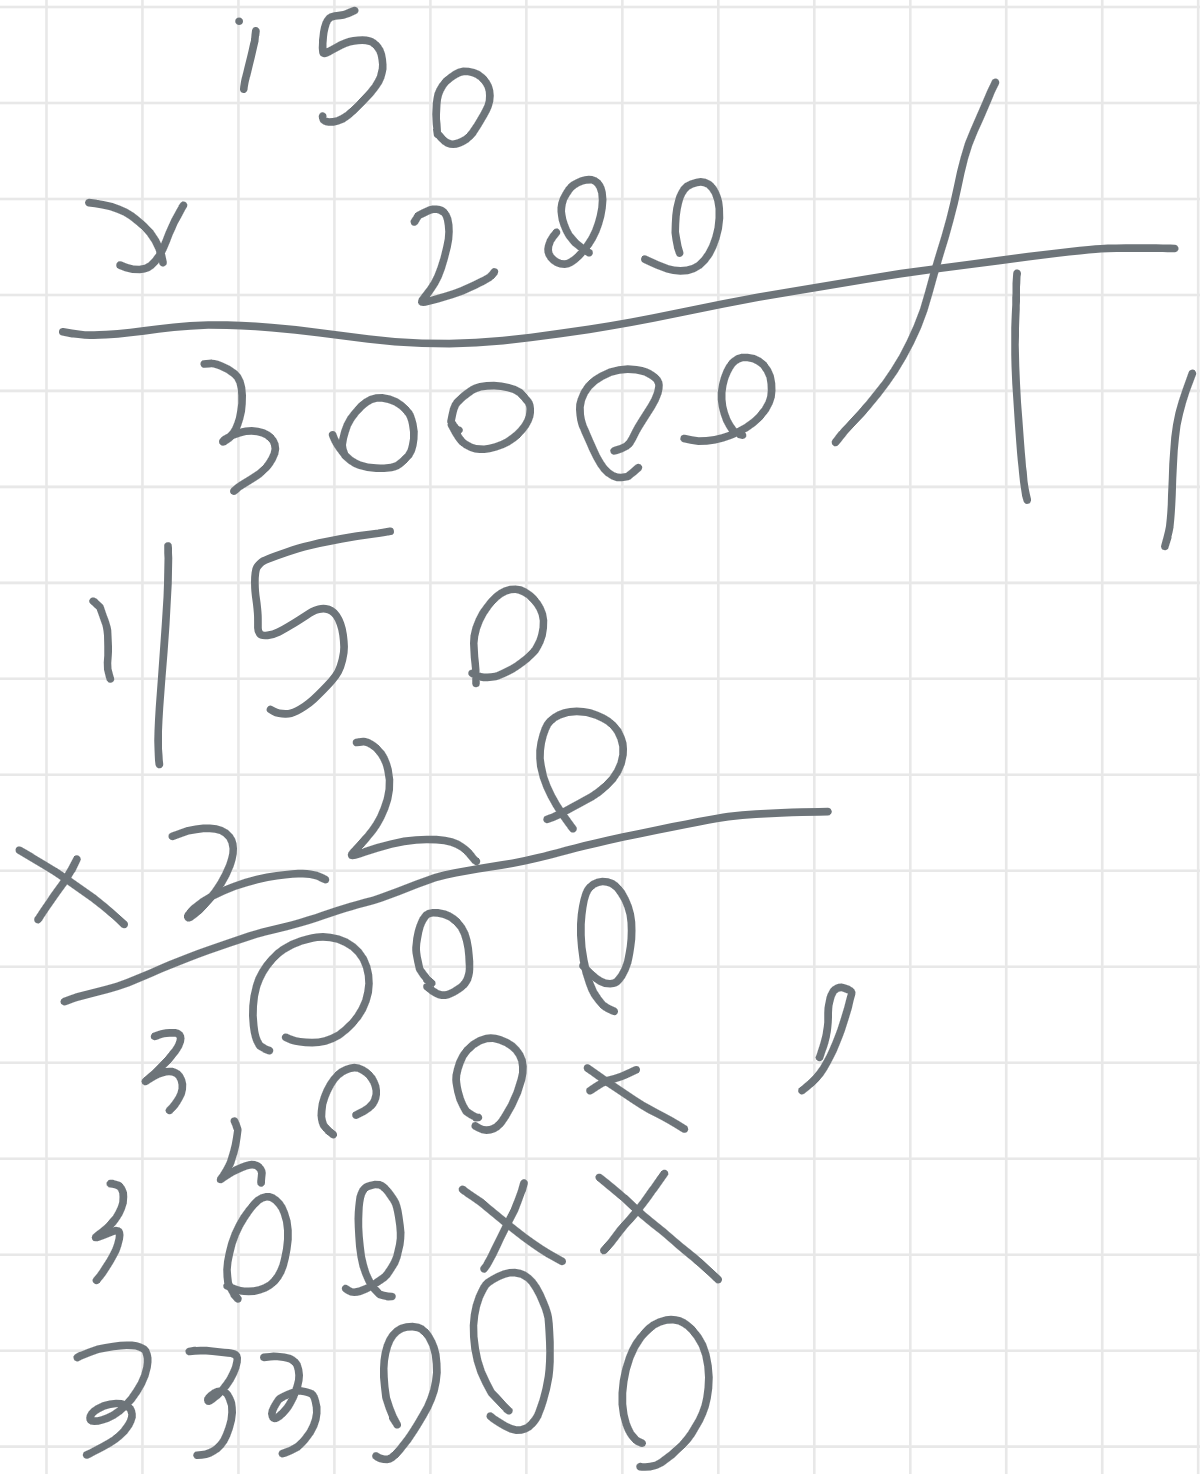 150
x 200
30000
1150
x 220
000
300x
300xx
333000